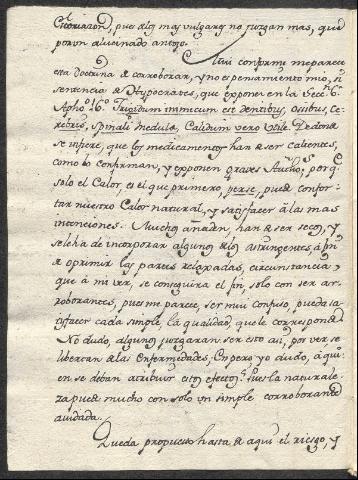 pues los mas vulgares no juzgan mas, que
por un alucinado antojo.
Mui conforme me parece
esta doctrina de corroborar, y no es pensamiento mio, es
sentencia de Hypocrates, que opponen en la Secc.
Apho. Frigidum inimicum est dentibus, Osibus, Ce-
rebris, Spinalis medula, Calidum vero Utile. De donde
se infiere, que los medicamentos han de ser calientes,
como lo confirman, y exponen graves Auth.s porq.
solo el Calor, es el que primero, perse, puede confor-
tar nuestro Calor natural, y satisfacer à las mas
intenciones. Muchos añaden, han de ser secos, y
se les ha de incorporar algunos Astringentes, à fin
de oprimir las partes relaxadas, circunstancia,
que à mi ver, se conseguira el fin, solo con ser ar-
roborantes, pues me parece ser mui confuso, pueda sa-
tisfacer cada simple, la qualidad, que le corresponde
No dudo, algunos juzgaran ser esto asi, por ver se
libertan de las Enfermedades, Empero yo dudo, à qui-
en se deban atribuir estos efectos. Pues la naturale-
za puede mucho con solo un simple corroborante
ayudada.
Queda propuesto hasta de aqui el riesgo, y